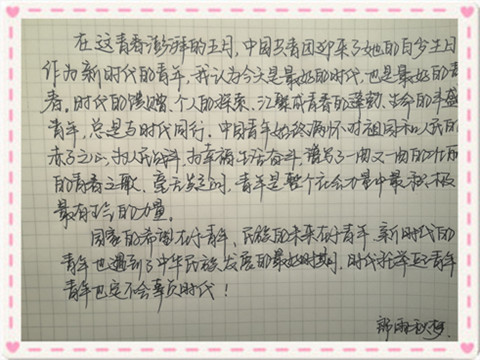 在这青春澎湃的五月,中国共青团迎来了她的百岁生日
作为新时代的青年,我认为今天是最好的时代,也是最好的青
春。时代的馈赠、个人的探索,汇聚成青春的蓬勃、生命的丰盛
青年,总是与时代同行。中国青年始终满怀对祖国和人民的
赤子之心,为人民战斗,为幸福生活奋斗,谱写了一曲又一曲的壮丽
的青春之歌,毫无疑问,青年是整个社会力量中最积极
最有生气的力量。
国家的希望在于青年,民族的未来在于青年,新时代的
青年也遇到了中华民族发展的最好时期,时代托举起了青年
青年也定不会辜负时代!